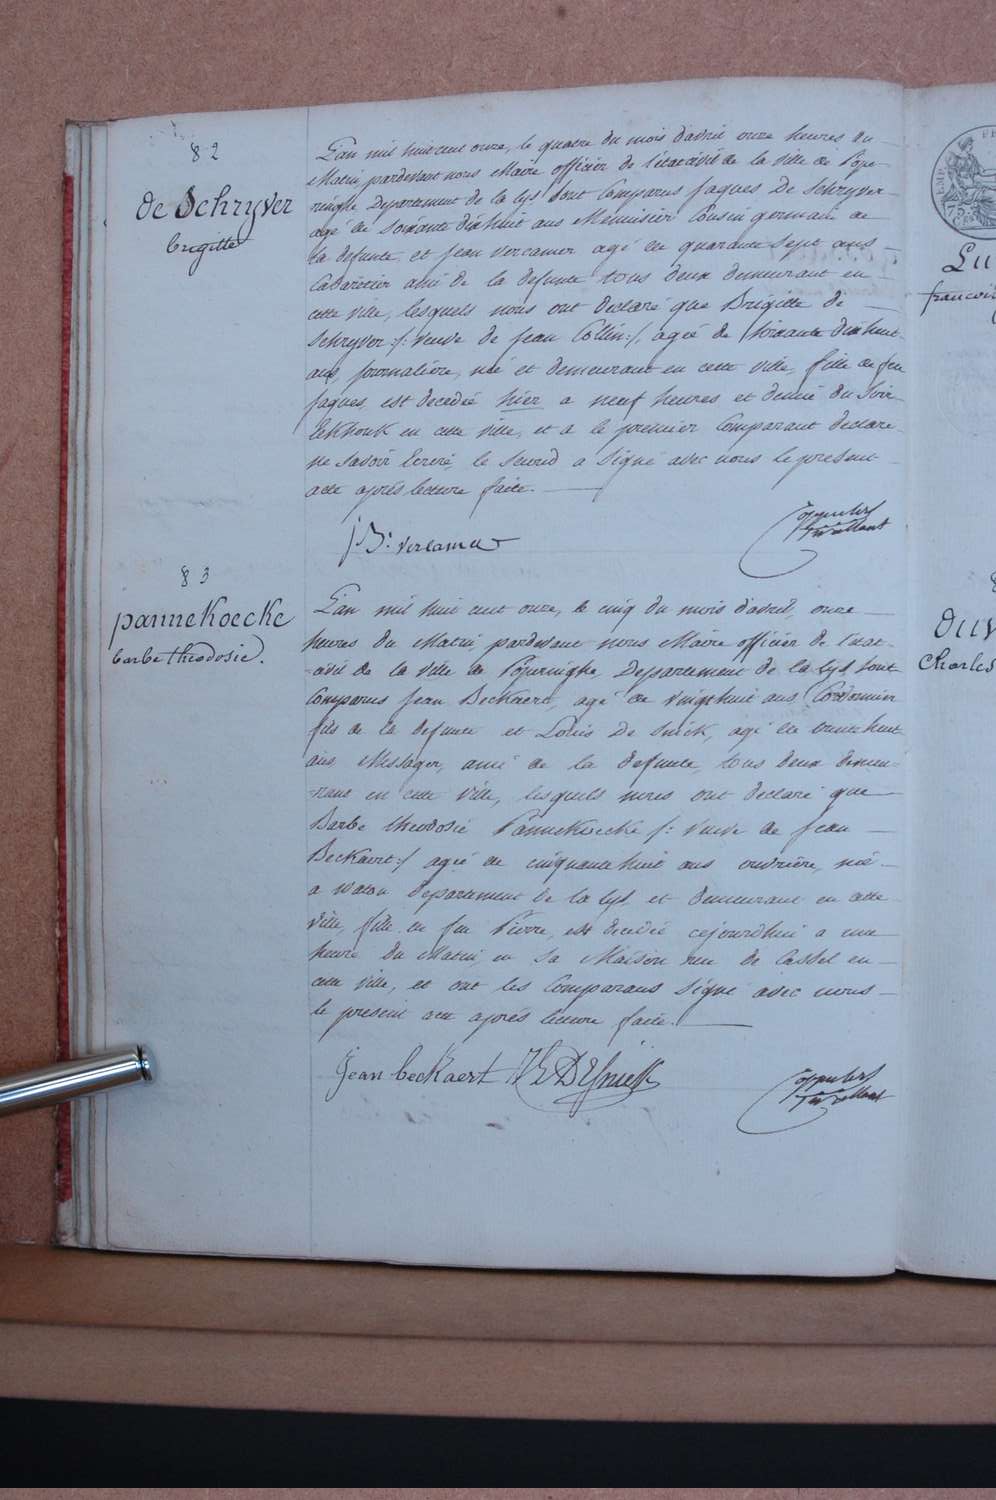 82
de Schryver
brigitte
L'an mil huit cent onze, le quatre du mois d'avril onze heures du
Matin pardevant nous Maire officier de l'état civil de la ville de Pope-
ringhe Departement de la Lys sont Comparus Jaques De Schryver
agé de soixante dixhuit ans Menuisier Cousin germain de
la defunte, et Jean Vercamer agé de quarante sept ans
Cabaretier ami de la defunte tous deux demeurant en
cette ville, lesquels nous ont declaré que Brigitte de
Schryver /: Veuve de Jean Collin :/, agée de soixante dixhuit
ans, journalière, née et demeurant en cette ville, fille de feu
Jaques, est decedée hier a neuf heures et demie du soir
en cette ville, et a le premier Comparant declaré
ne savoir Ecrire, le second a signé avec nous le present
acte après lecture faite.
J. B. Vercamer
83
pannekoecke
barbe theodosie.
L'an mil huit cent onze, le cinq du mois d'avril, onze
heures du Matin pardevant nous Maire officier de l'etat
civil de la Ville de Poperinghe Departement de la Lys sont
Comparus Jean Beckaert, agé de vingthuit ans Cordonnier
fils de la defunte et Louis De Snick, agé de trentehuit
ans Messager, ami de la defunte, tous deux demeu-
-rant en cette Ville, lesquels nous ont declaré que
Barbe theodosie Pannekoecke /: Veuve de Jean
Beckaert :/ agée de cinquantehuit ans ouvrière, née
a Watou departement de la Lys et demeurant en cette
ville, fille de feu Pierre, est decedée cejourdhui a une
heure du Matin, en sa Maison rue de Cassel en
cette ville, et ont les Comparans signé avec nous
le present acte après lecture faite.
Jean beckaert
Lu
francois
duv
Charles